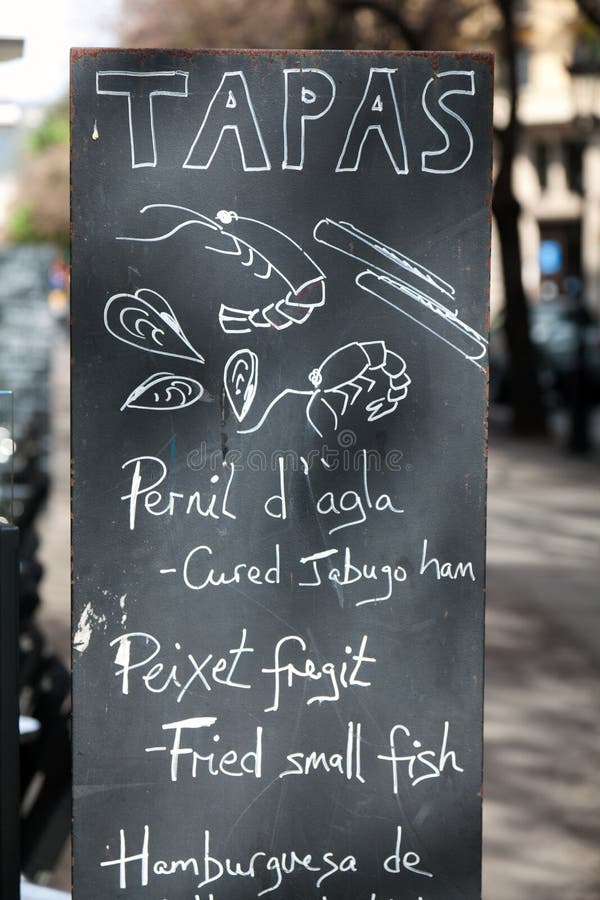 TAPAS
Pernil d'àgla
-Cured Jabugo ham
Peixet fregit
-Fried small fish
Hamburguesa de
dreamstime